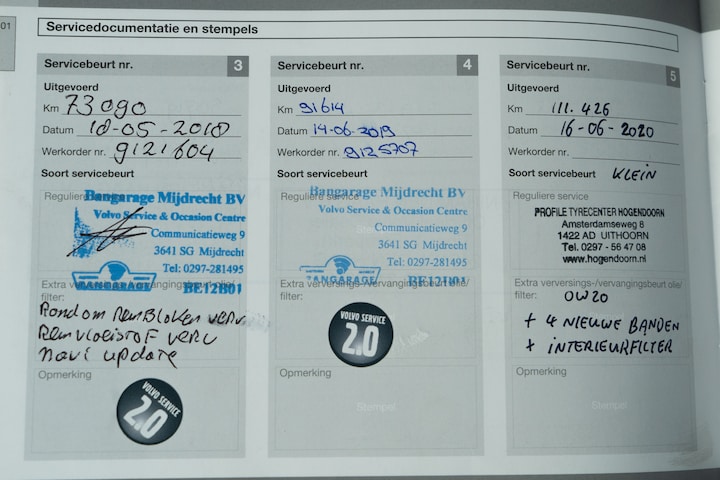 01
Servicedocumentatie en stempels
Servicebeurt nr. 3
Uitgevoerd
Km 73090
Datum 18-05-2018
Werkorder nr. 9121604
Soort servicebeurt
Reguliere service
Bangarage Mijdrecht BV
Volvo Service & Occasion Centre
Communicatieweg 9
3641 SG Mijdrecht
Tel: 0297-281495
BANGARAGE BE12B01
Extra verversings-/vervangingsbeurt olie/
filter:
Rondom RemBloken verv
Remvloeistof verv
navi update
Opmerking
VOLVO SERVICE
2.0
Servicebeurt nr. 4
Uitgevoerd
Km 91614
Datum 14-06-2019
Werkorder nr. 9125707
Soort servicebeurt
Reguliere service
Bangarage Mijdrecht BV
Volvo Service & Occasion Centre
Communicatieweg 9
3641 SG Mijdrecht
Tel: 0297-281495
BANGARAGE BE12B01
Extra verversings-/vervangingsbeurt olie/
filter:
VOLVO SERVICE
2.0
Opmerking
Stempel
Servicebeurt nr. 5
Uitgevoerd
Km 111.426
Datum 16-06-2020
Werkorder nr.
Soort servicebeurt KLEIN
Reguliere service
PROFILE TYRECENTER HOGENDOORN
Amsterdamseweg 8
1422 AD UITHOORN
Tel. 0297 - 56 47 08
www.hogendoorn.nl
Extra verversings-/vervangingsbeurt olie/
filter: 0W20
+ 4 NIEUWE BANDEN
+ INTERIEURFILTER
Opmerking
Stempel